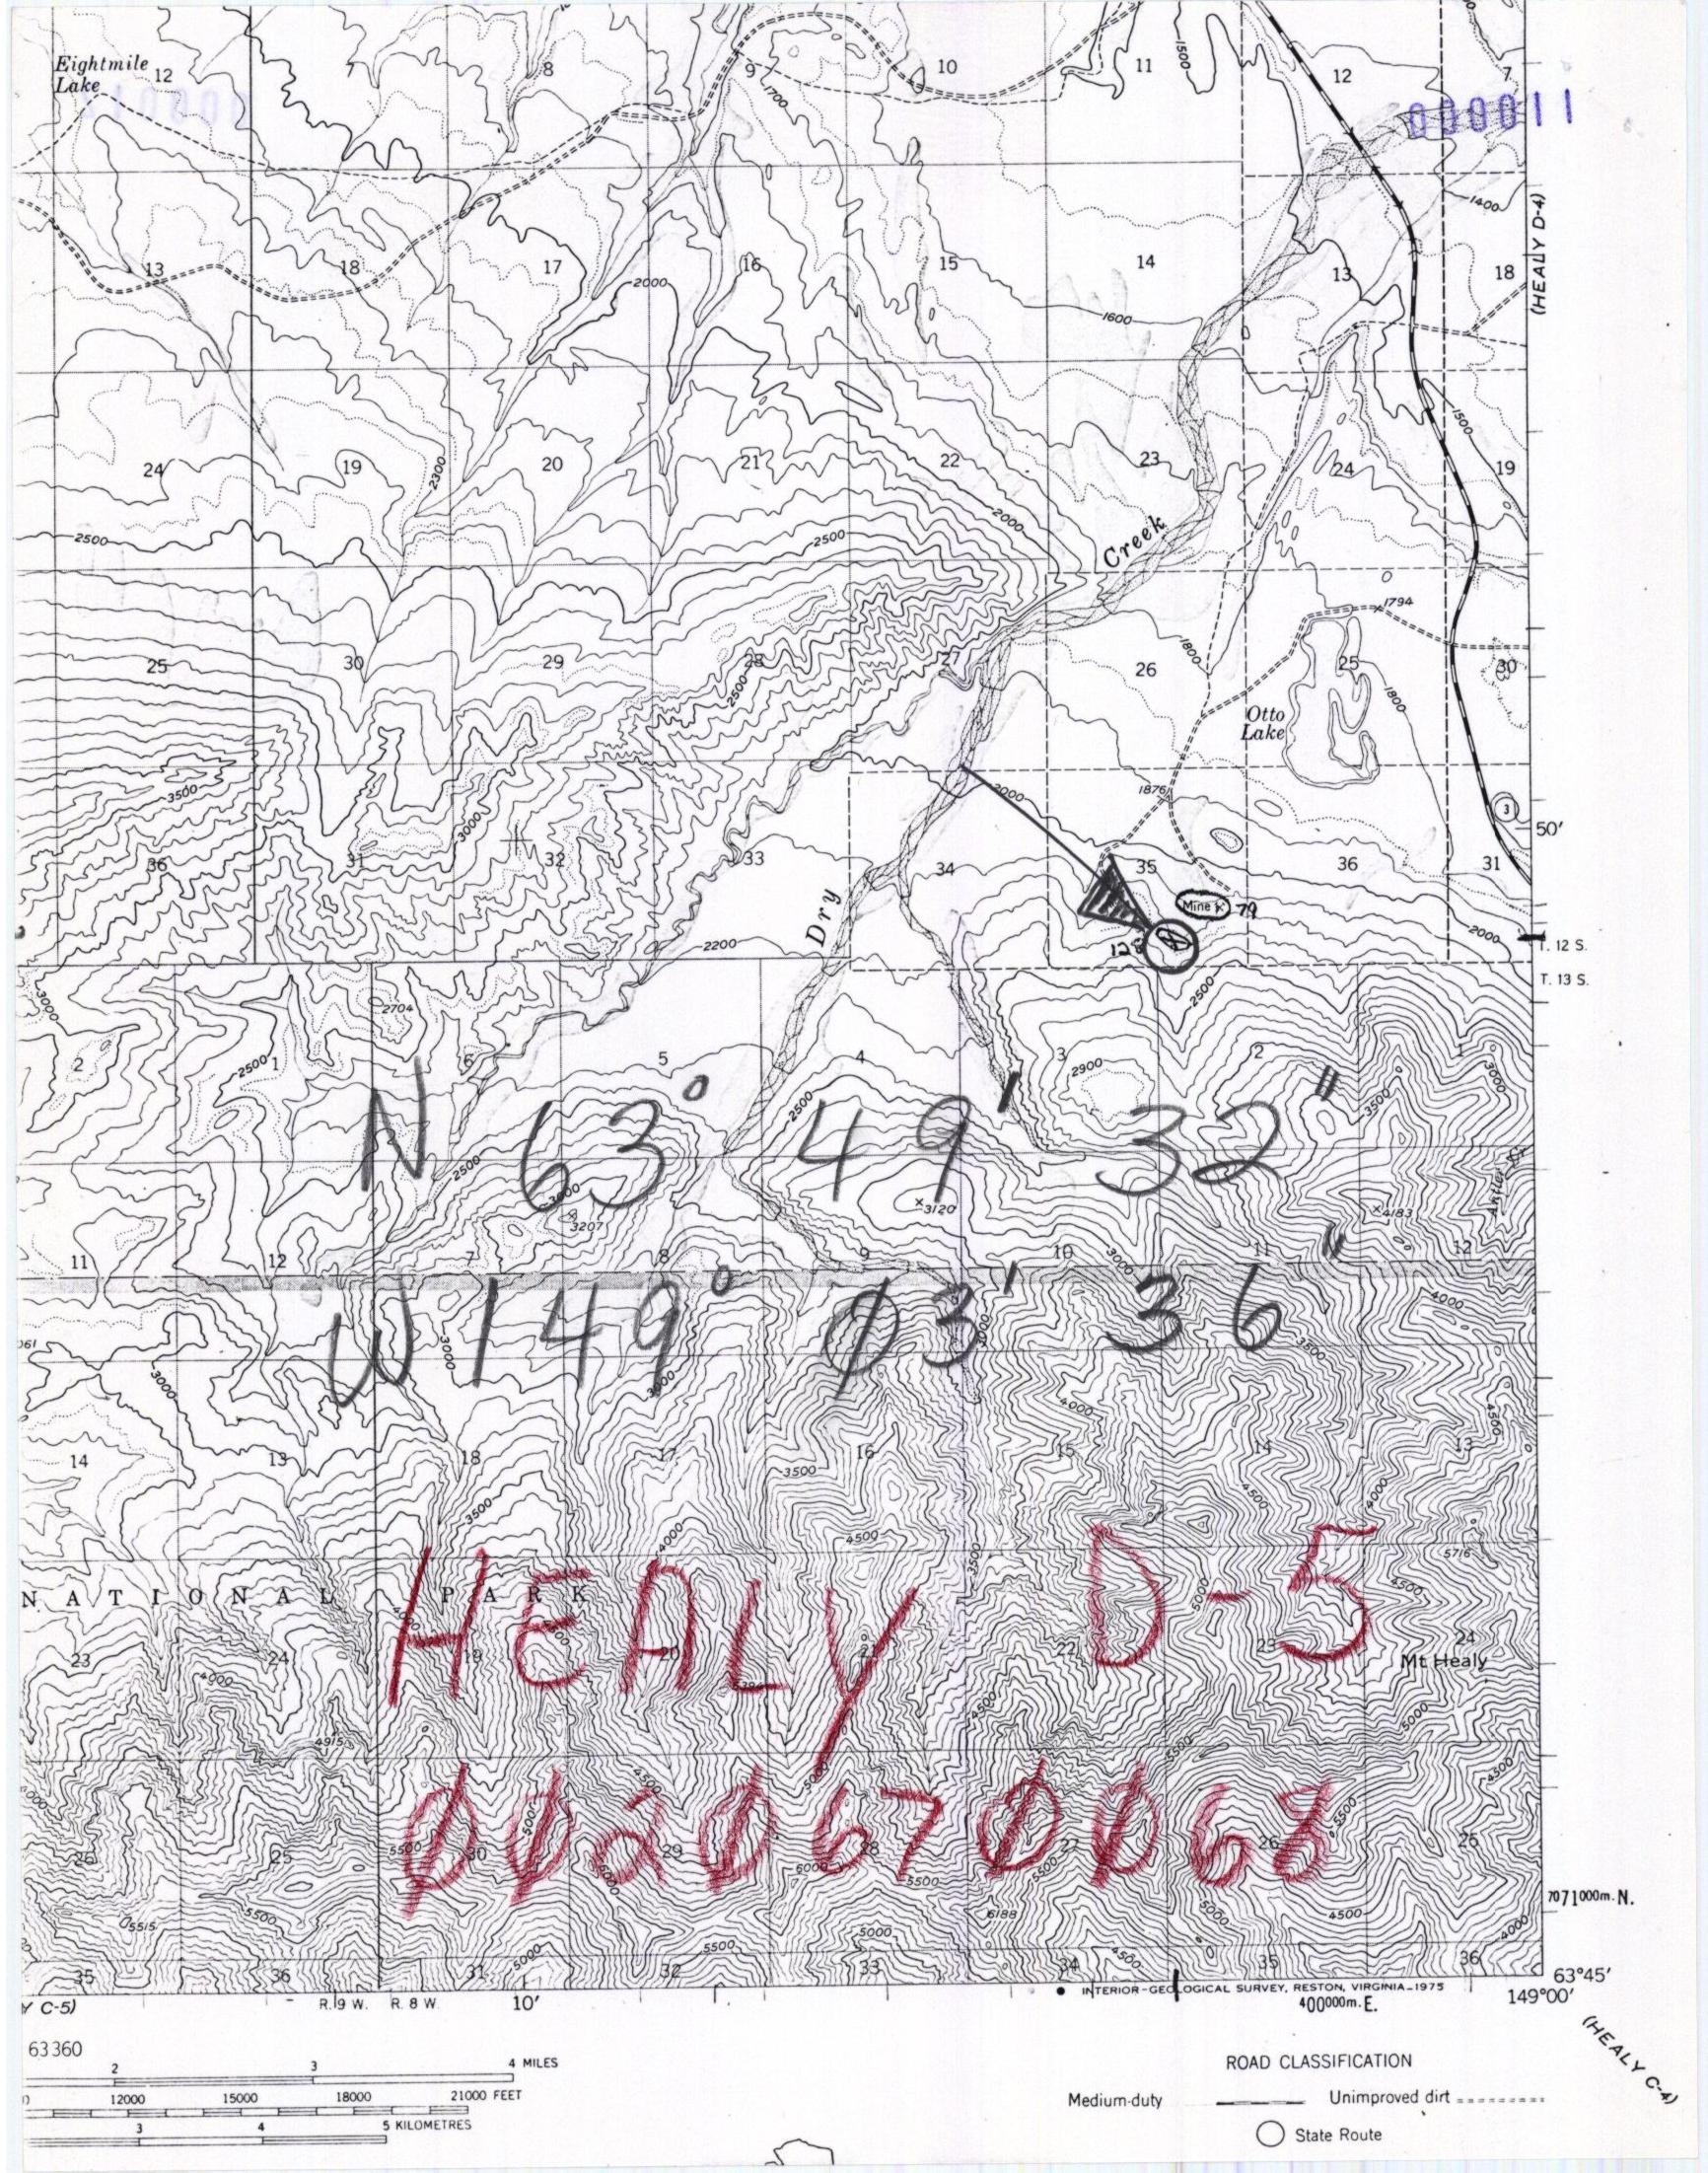 Eightmile
Lake
12 7 8 9 10 11 12 7
1500
1700
000011
(HEALY D-4)
1400
13 18 17 16 15 14 13 18
2000
1600
1500
24 19 20 21 22 23 24 19
2300
2500 2500 2000
Creek
1794
25 30 29 28 27 26 25 30
1800
2500
1800
Otto
Lake
3500
3000
2000
1876
3
50'
36 31 32 33 34 35 36 31
Mine 79
Dry
2200
2000
T. 12 S.
T. 13 S.
3000
2704
2500
2 1 6 5 4 3 2 1
2500
2900
3000
2500
3500
N 63° 49' 32"
2500
3000
3207
3120
4183
11 12 7 8 9 10 11 12
3000
W 149° 03' 36"
4000
3000
3500
3000
3000
3000
4000
4500
14 13 18 17 16 15 14 13
3500
3500
4500
4000
4000
4500
3500
5716
4500
HEALY D-5
NATIONAL PARK
5000
23 24 19 20 21 22 23 24
Mt Healy
4000
4500
5000
4915
5500
4500
5000
4500
4000
0020670068
5000
5500
26 25 30 29 28 27 26 25
5500
6000
5000
5500
5500
7071000m. N.
5515
5500
6188
5000
4500
4000
5000
5500
5000
4500
35 36 31 32 33 34 35 36
63°45'
INTERIOR-GEOLOGICAL SURVEY, RESTON, VIRGINIA-1975
Y C-5) R. 9 W. R. 8 W. 10' 400000m. E. 149°00'
(HEALY C-4)
63360
2 3 4 MILES
12000 15000 18000 21000 FEET
3 4 5 KILOMETRES
ROAD CLASSIFICATION
Medium-duty Unimproved dirt
State Route